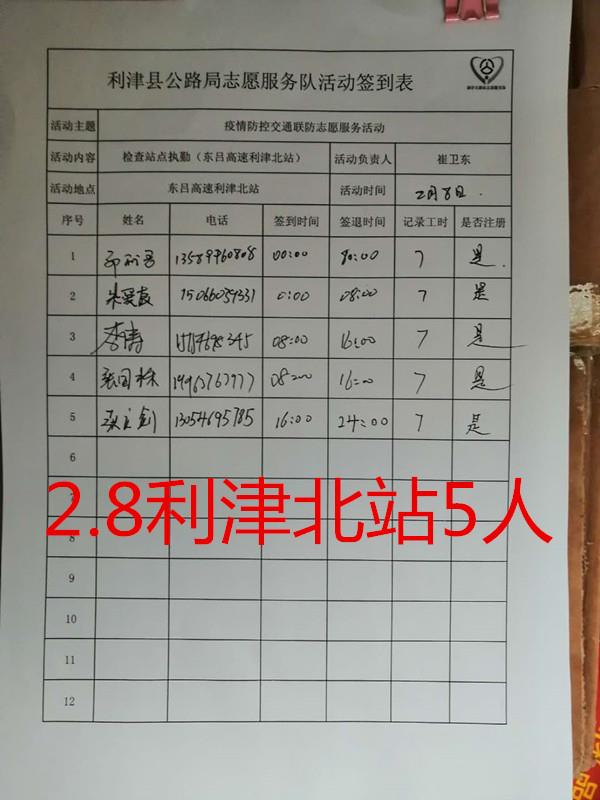 利津县公路局志愿服务队活动签到表
活动主题 疫情防控交通联防志愿服务活动
活动内容 检查站点执勤（东吕高速利津北站） 活动负责人 崔卫东
活动地点 东吕高速利津北站 活动时间 2月8日.
序号 姓名 电话 签到时间 签退时间 记录工时 是否注册
1 13589960808 00:00 7 是
2 朱爱霞 15066059331 0:00 08:00 7 是
3 李涛 08:00 16:00 7 是
4 张国林 19963767777 08:00 16:00 7 是
5 13054695785 16:00 24:00 7 是
6
7
2.8利津北站5人
8
9
10
11
12